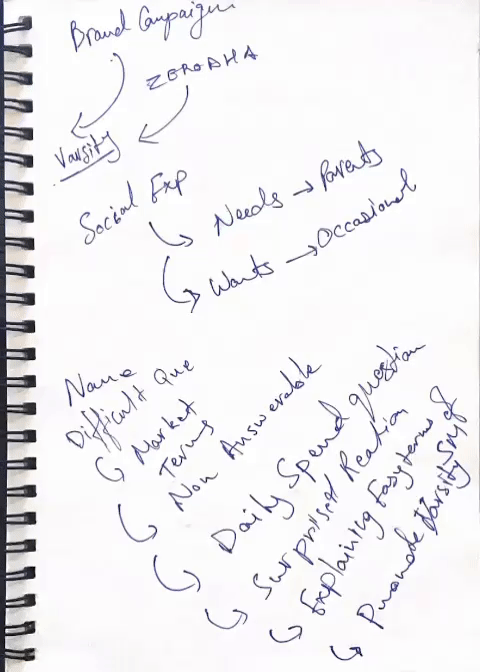 Brand Campaign
ZERODHA
Varsity
Social Exp
Needs → Parents
Wants → Occasional
Name
Difficult Que
Market
Terms
Non Answerable
Daily Spend question
Surprised Reation
Explaining Easy terms
Promode Varsity